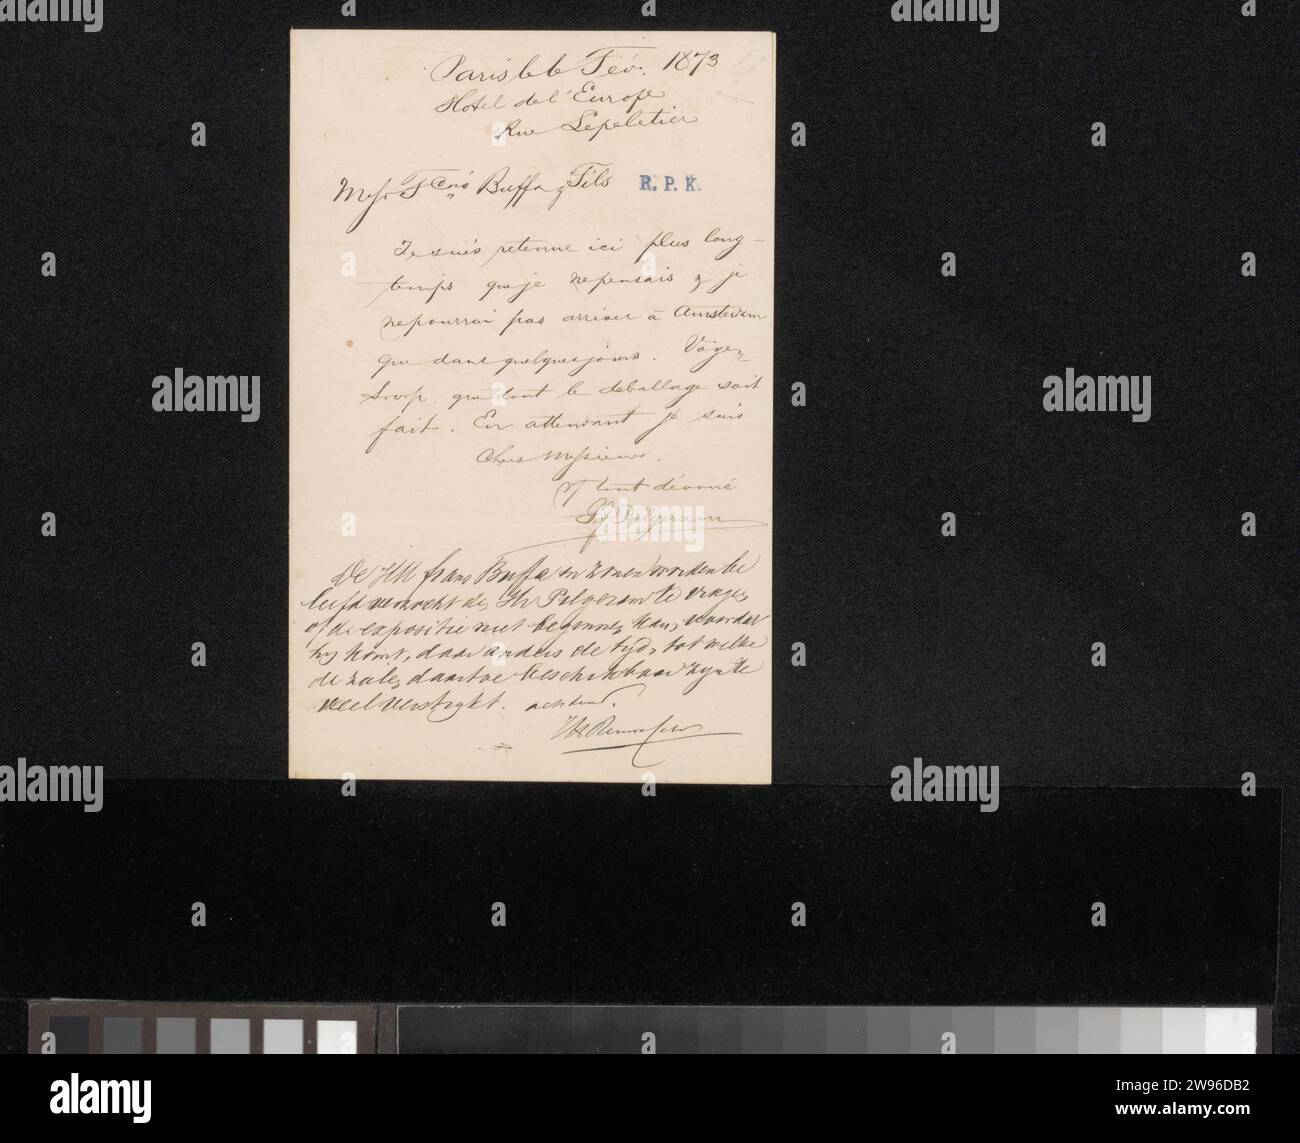 Paris le 6 Fév. 1873
Hotel de l'Europe
Rue Lepeletier
Messrs Fçois Buffa & Fils
R. P. K.
Je suis retenue ici plus long-
temps que je ne pensais & je
ne pourrai pas arriver à Amsterdam
que dans quelques jours. Voyez
svp. que tout le deballage soit
fait. En attendant je suis
Chers Messieurs.
Vf tout dévoué
Pilgeram
De HH frans Buffa en zonen worden be
leefd verzocht den Hr Pilgeram te vragen
of de expositie niet beginnen kan, voordat
hij komt, daar anders de tijd, tot welke
de zalen daartoe beschikbaar zijn te
veel verstrijkt. achtend.
alamy
Image ID: 2W96DB2
www.alamy.com